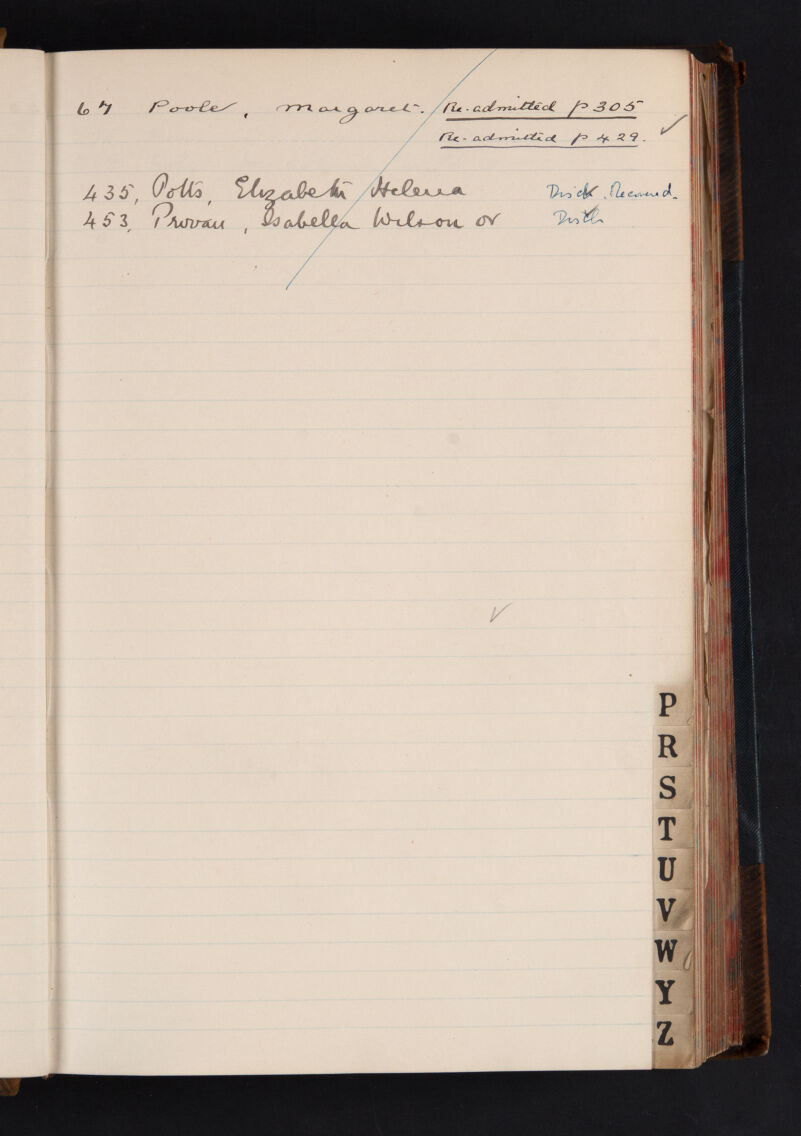 67 Poole, Margaret. Re-admitted p 305
Re-admitted p 429.
435, Potts, Elizabeth Helena Disch. Recovered.
453, Provan, Isabella Wilson or
P
R
S
T
U
V
W
Y
Z